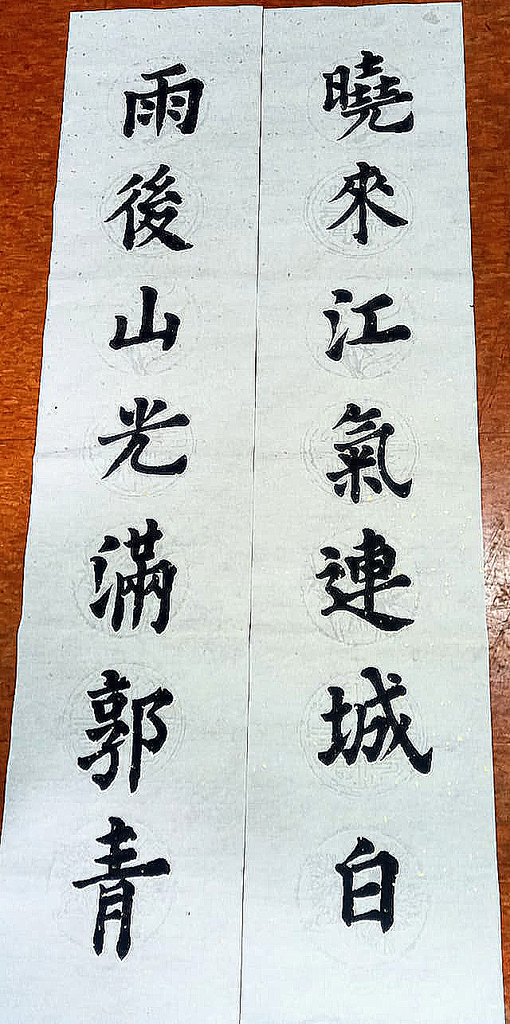 曉來江氣連城白
雨後山光滿郭青